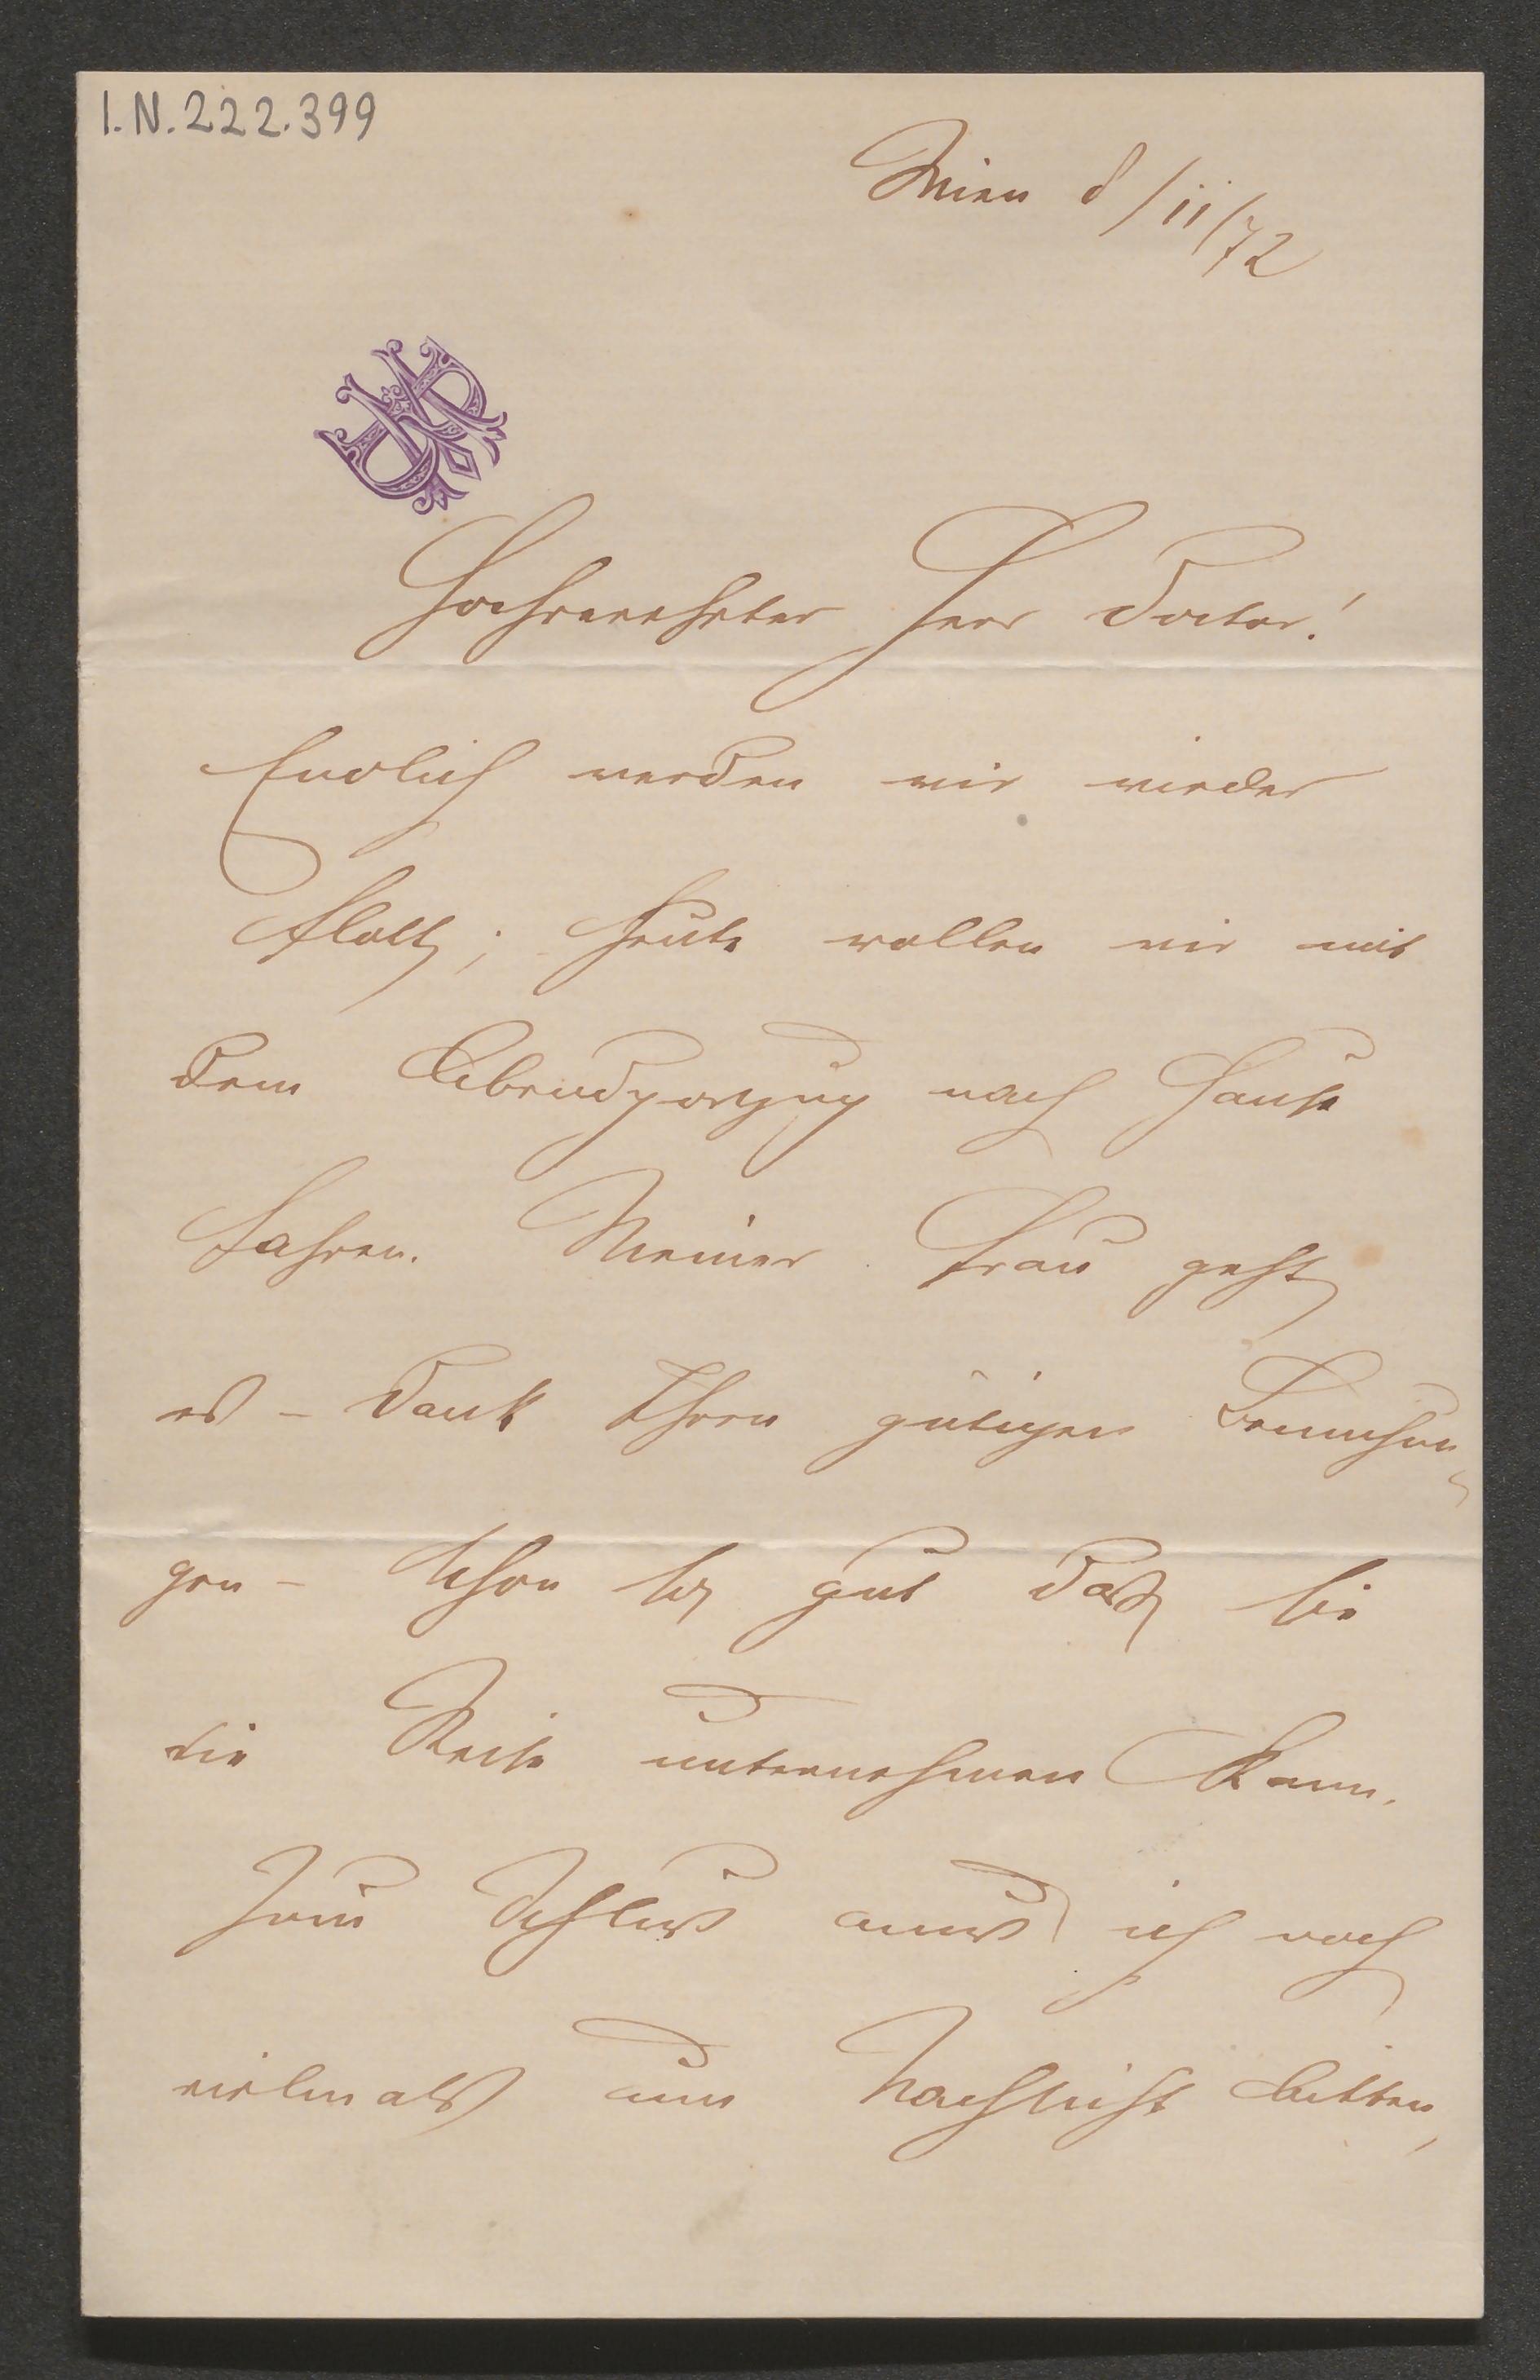 I.N. 222.399
Wien 8/11/72
Hochverehrter Herr Doctor!
Endlich werden wir wieder
flott; heute wollen wir mit
dem Abendpostzug nach Hause
fahren. Meiner Frau geht
es – Dank Ihren gütigen Bemühun„
gen – schon so gut daß sie
die Reise unternehmen kann.
Zum Schluß muß ich noch
vielmals um Nachsicht bitten,